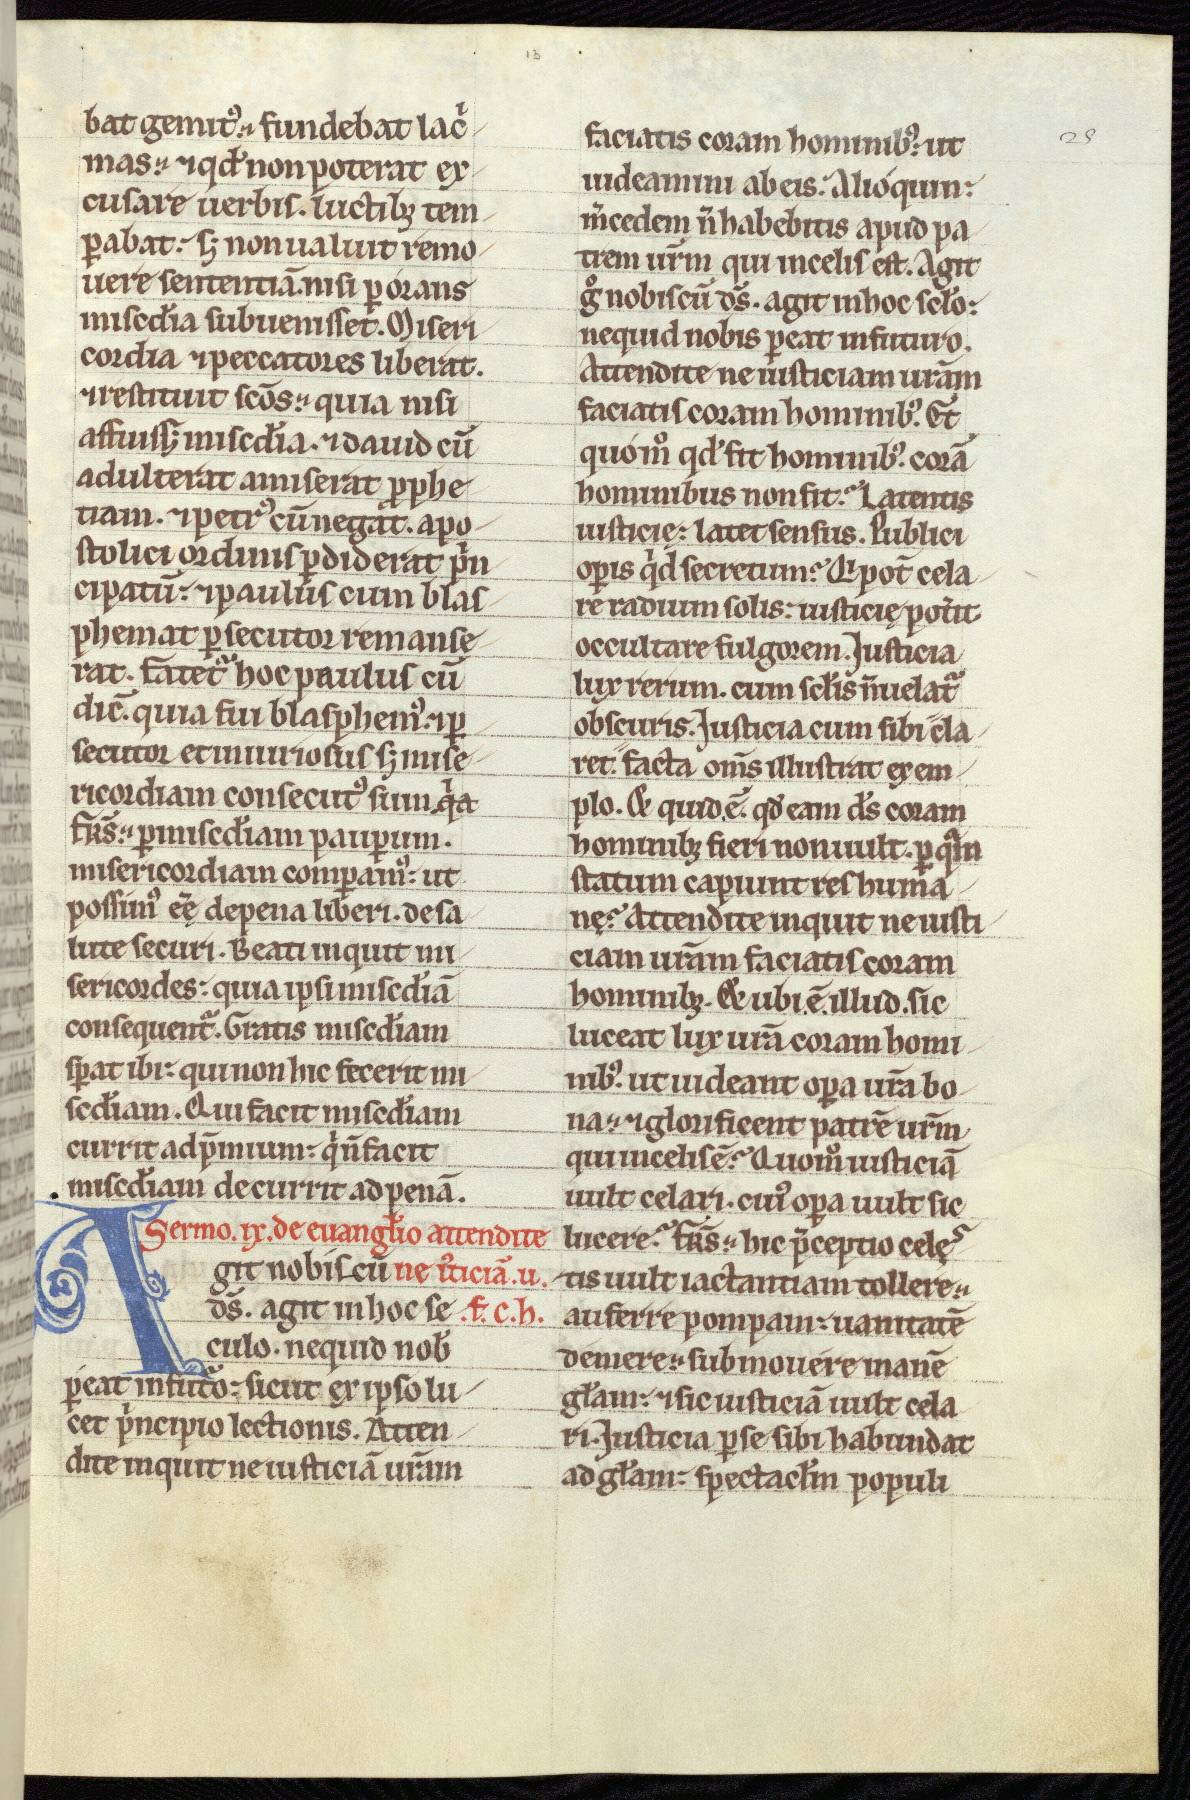 13
28
bat gemitꝰ. fundebat lac̾
mas. ⁊ qd̾ non poterat ex
cusare uerbis. luctibꝫ tem
ꝑabat: sꝫ non ualuit remo
uere sententiā. nisi ꝑorans
misc̾dia subuenisset. Miseri
cordia ⁊ peccatores liberat.
⁊ restituit sc̄os. quia nisi
affuissꝫ misc̾dia. ⁊ dauid cū
adulterat amiserat ꝓphe
tiam. ⁊ petrꝰ cū negat̾. apo
stolici ordinis ꝑdiderat pͥn
cipatū: ⁊ paulus cum blas
phemat ꝑsecutor remanse
rat. Fatetᷣ hoc paulus cū
dic̄. quia fui blasphemꝰ. ⁊ ꝑ
secutor et iniuriosus sꝫ mise
ricordiam consecutꝰ sum. qͥa
fr̄s. ꝑ misc̾diam pauꝑum.
misericordiam comꝑamꝰ: ut
possimꝰ eę̄ de pena liberi. de sa
lute securi. Beati inquit mi
sericordes: quia ipsi misc̾diā
consequentᷣ. Gratis misc̾diam
sꝑat ibi: qui non hic fecerit mi
sc̾diam. Qui facit misc̾diam
currit ad p̄mium: qͥ n̄ facit
misc̾diam decurrit ad penā.
Sermo. ix. de euangl̾io attendite
Agit nobiscū ne iͥticiā. u.
d̄s. agit in hoc se .f. c. h.
culo. nequid nob̾
ꝑeat in futo᷑: sicut ex ipso lu
cet pͥncipio lectionis. Atten
dite inquit ne iusticiā ur̄am
faciatis coram hominibꝰ: ut
uideamini ab eis: Alioquin:
m̾cedem n̄ habebitis apud pa
trem ur̄m qui in celis est. Agit
gͦ nobiscū d̄s. agit in hoc sc̾lo:
nequid nobis ꝑeat in futuro.
Attendite ne iusticiam ur̄am
faciatis coram hominibꝰ. Et
quom̊ qd̾ fit hominibꝰ. corā
hominibus non fit? Latentis
iusticię: latet sensus. Publici
oꝑis qͥd secretum? Qͥ pot̄ cela
re radium solis: iusticię pot̾it
occultare fulgorem. Justicia
lux rerum. cum sc̾lis n̄ uelatᷣ
obscuris. Justicia cum sibi cla
ret: facta om̄s illustrat exem
plo. & quid ē. qd̾ eam d̄s coram
hominibꝫ fieri non uult. ꝑ qͣm
statum capiunt res huma
nę? Attendite inquit ne iusti
ciam ur̄am faciatis coram
hominibꝫ. & ubi ē illud. sic
luceat lux ur̄a coram homi
nibꝰ. ut uideant oꝑa ur̄a bo
na. ⁊ glorificent patrē ur̄m
qui in celis ē? Quom̊ iusticiā
uult celari. cuiꝰ oꝑa uult sic
lucere? fr̄s. hic p̄ceptio celęs
tis uult iactantiam tollere.
auferre pompam: uanitatē
demere. submouere inanē
gl̾am: ⁊ sic iusticiā uult cela
ri. Justicia ꝑ se sibi habundat
ad gl̾am: spectacl̾m populi